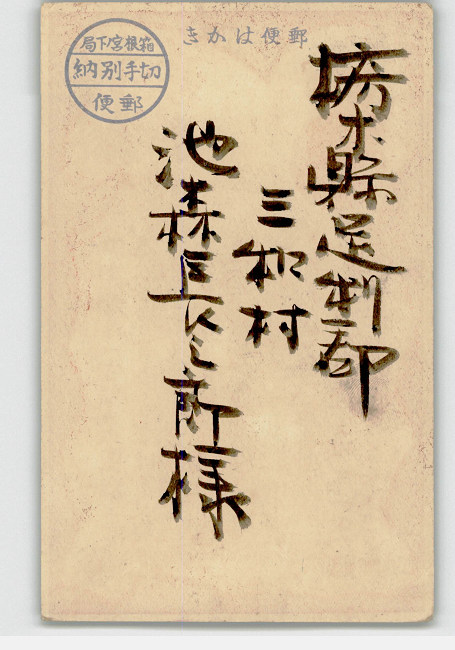 郵便はかき
箱根宮下局
切手別納
郵便
栃木縣足利郡
三和村
池森長郎様